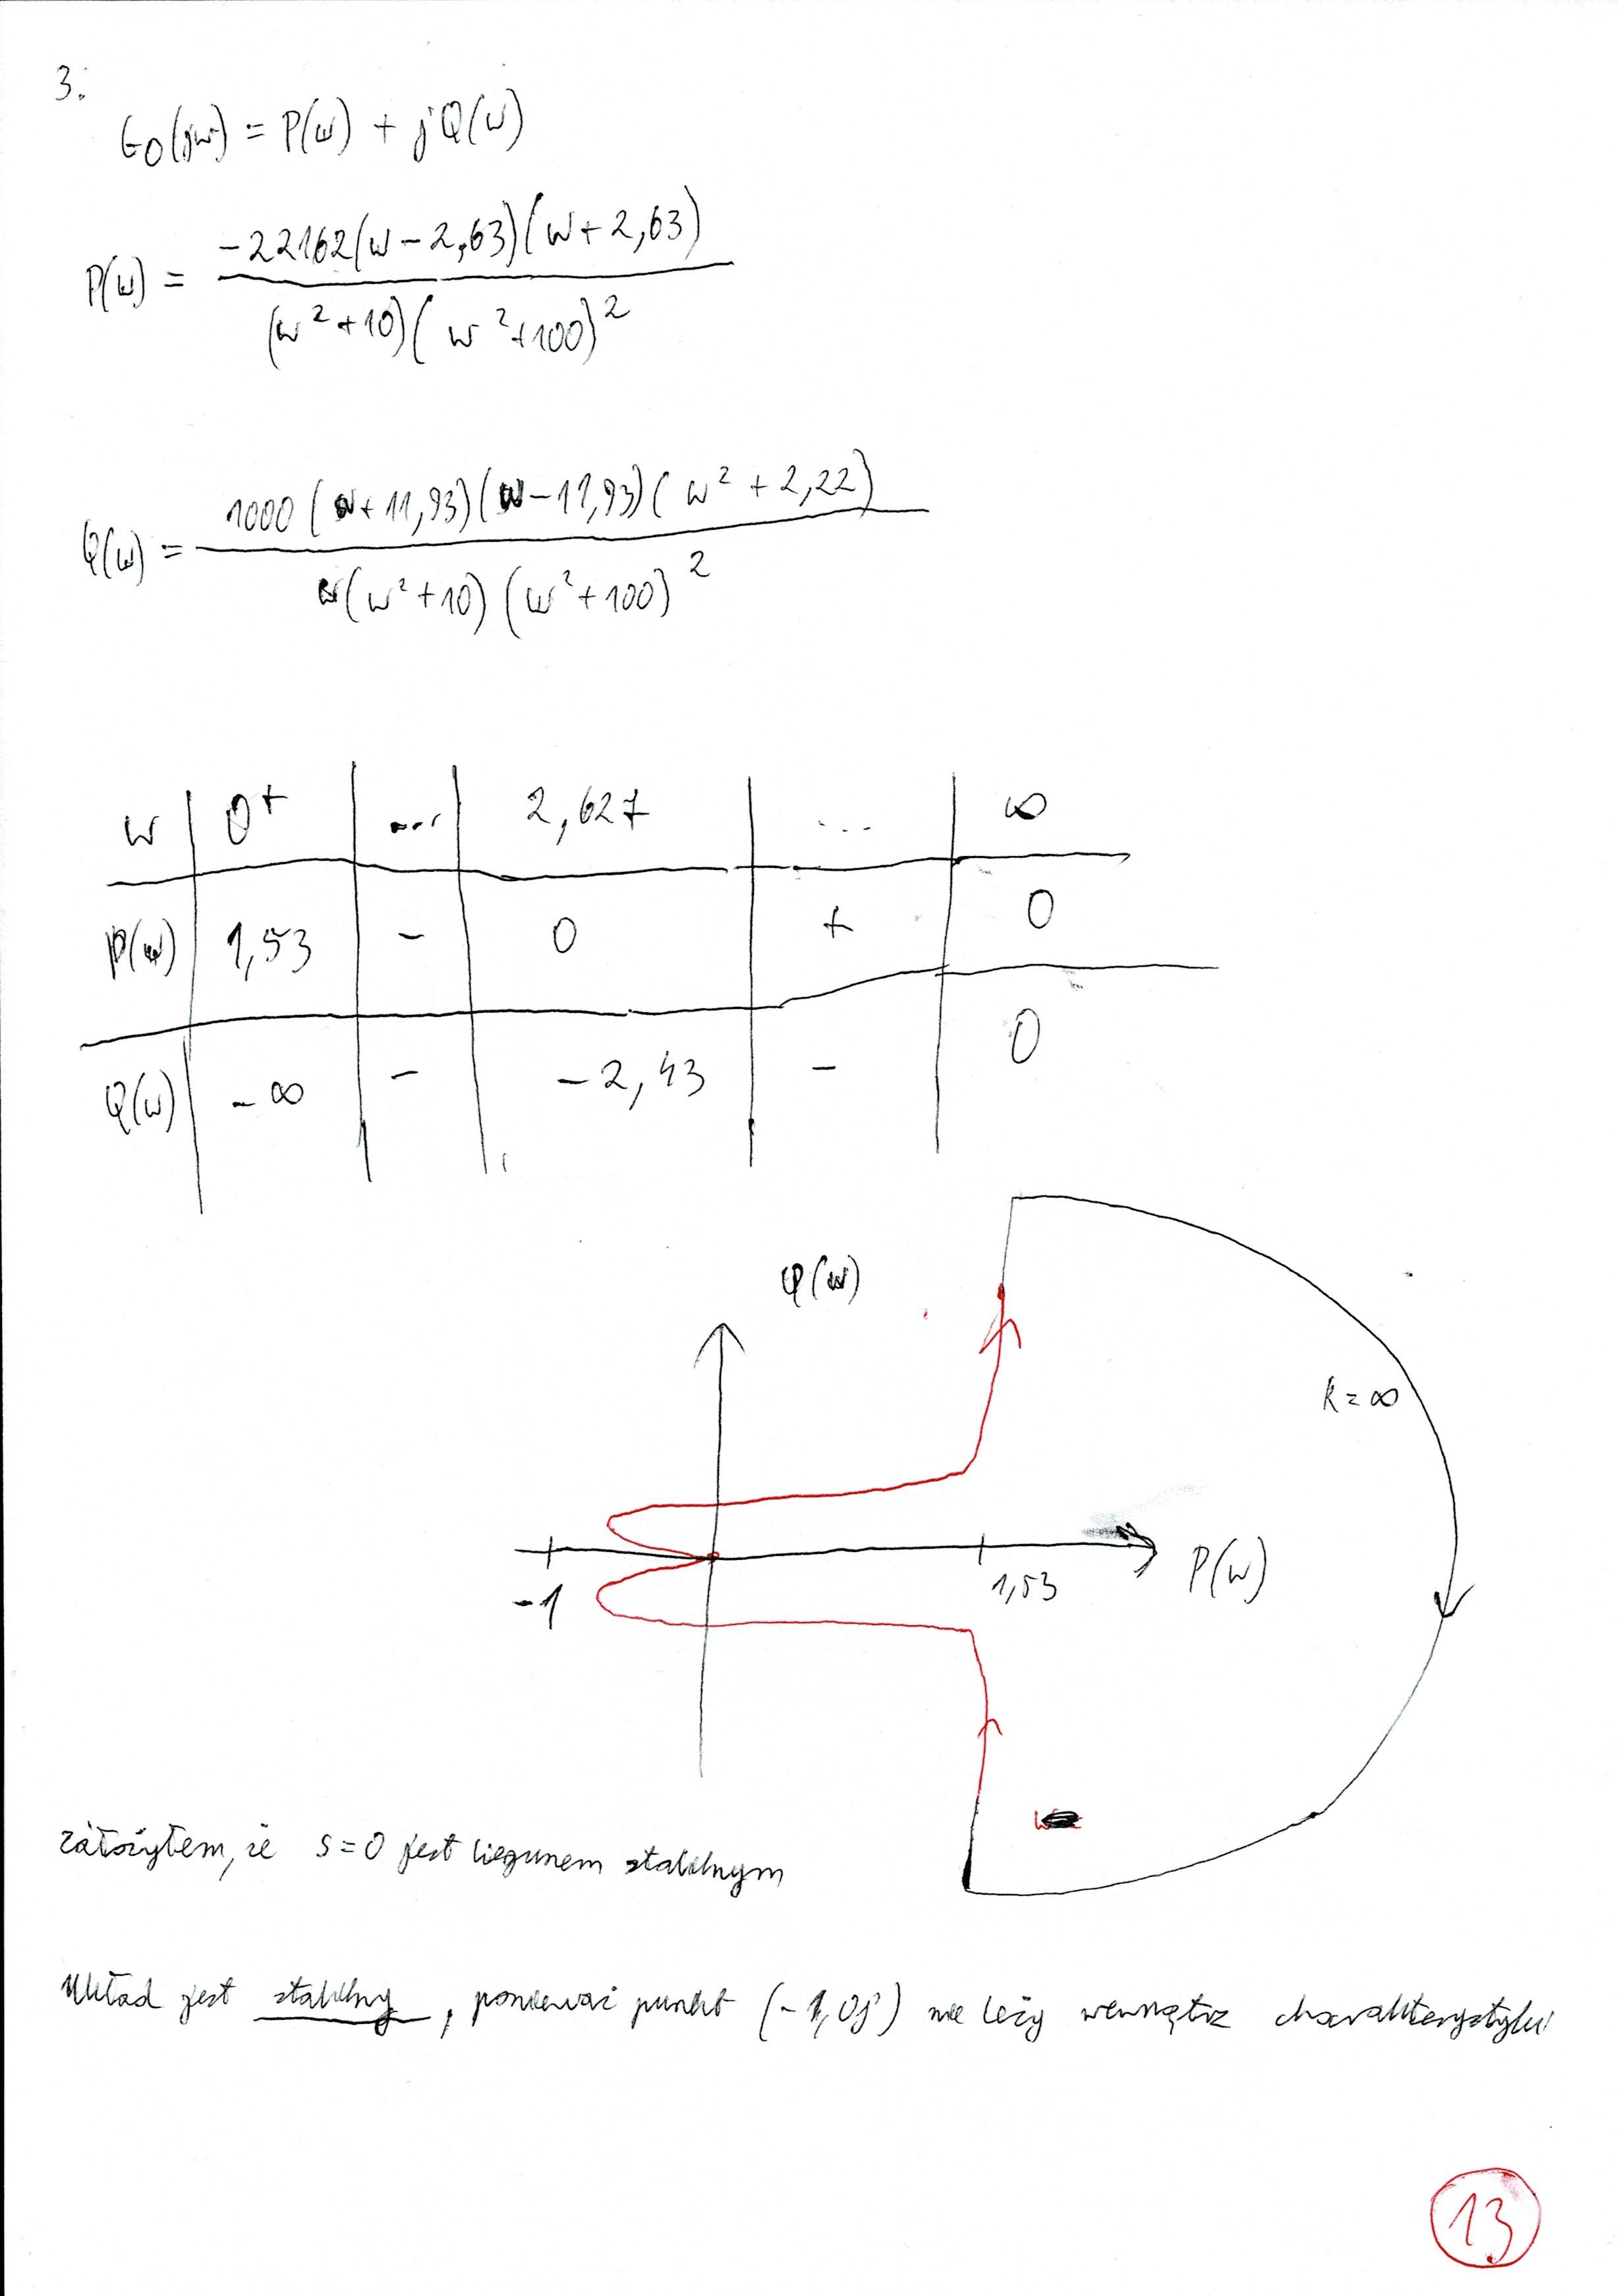 3.
G0(jw) = P(w) + jQ(w)
P(w) = -22162(w-2,63)(w+2,63) / (w²+10)(w²+100)²
Q(w) = 1000(w+11,93)(w-11,93)(w²+2,22) / w(w²+10)(w²+100)²
w 0+ .... 2,627 ... ∞
P(w) 1,53 - 0 + 0
Q(w) -∞ - -2,43 - 0
Q(w)
R=∞
-1 1,53 P(w)
założyłem, że s=0 jest biegunem stabilnym
Układ jest stabilny, ponieważ punkt (-1,0j) nie leży wewnątrz charakterystyki
13